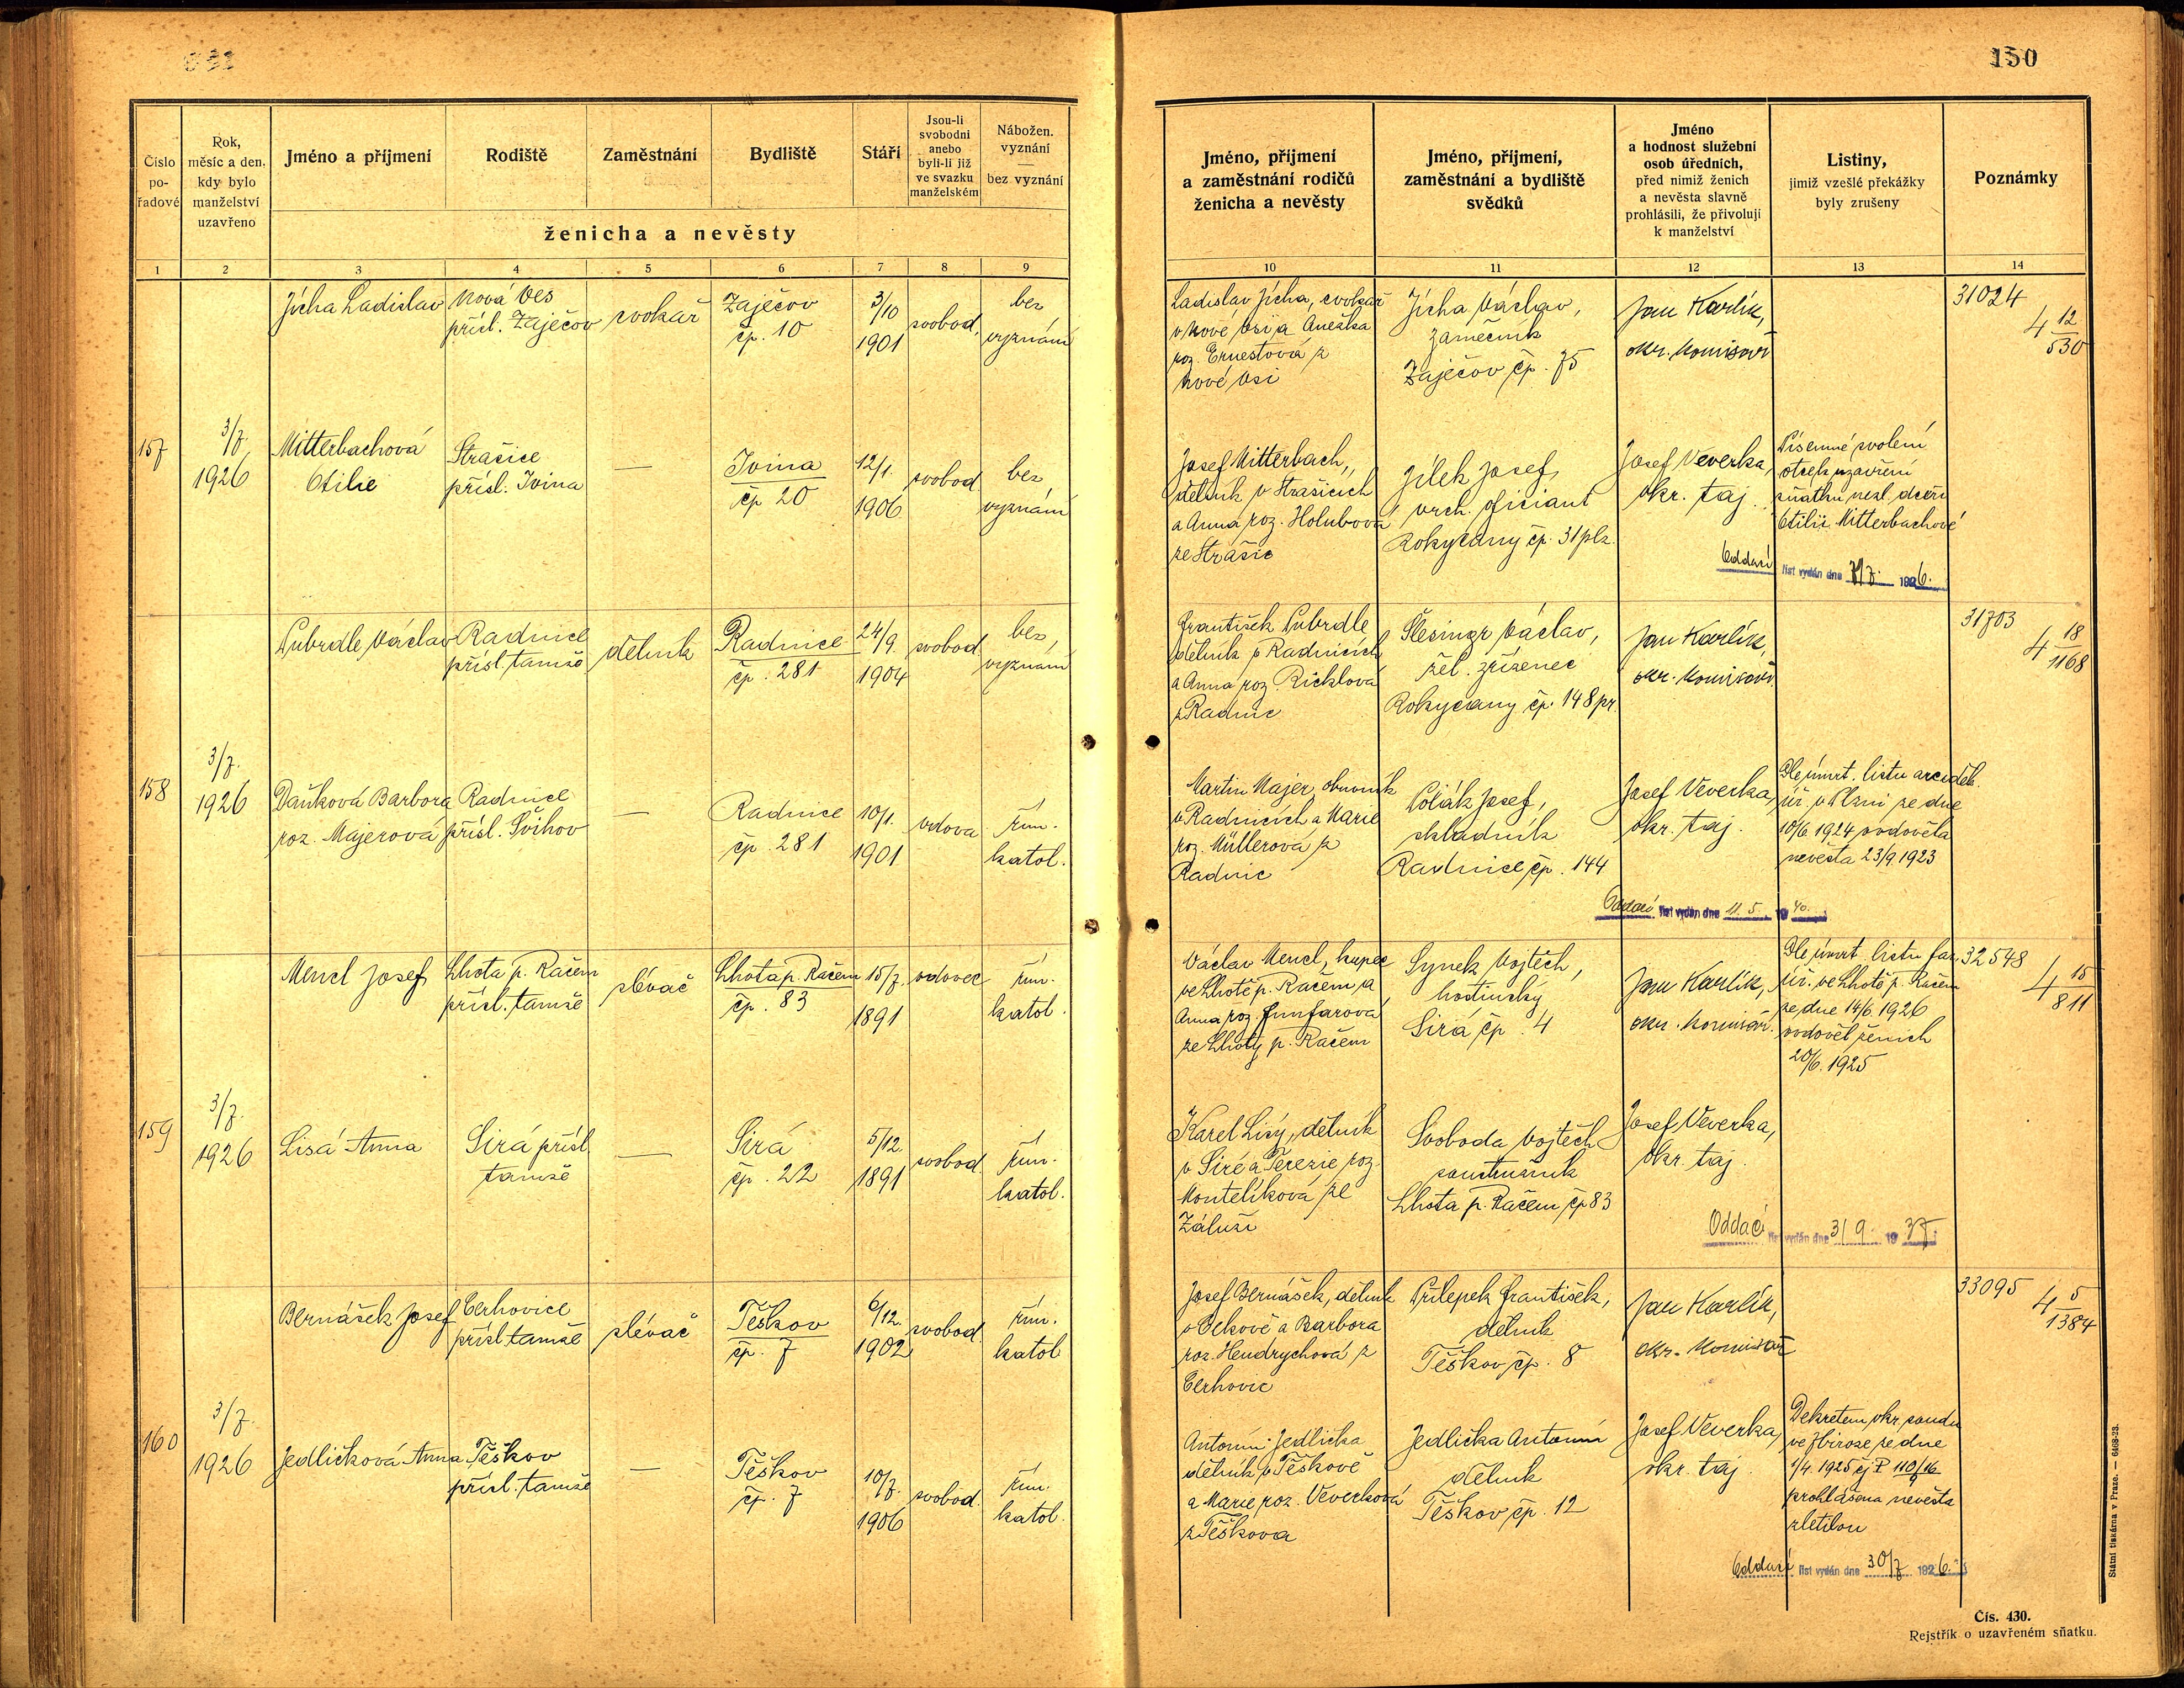 150
Číslo
po-
řadové
Rok,
měsíc a den,
kdy bylo
manželství
uzavřeno
Jméno a příjmení
Rodiště
Zaměstnání
Bydliště
Stáří
Jsou-li
svobodni
anebo
byli-li již
ve svazku
manželském
Nábožen.
vyznání
—
bez vyznání
ženicha a nevěsty
1 2 3 4 5 6 7 8 9
Jméno, příjmení
a zaměstnání rodičů
ženicha a nevěsty
Jméno, příjmení,
zaměstnání a bydliště
svědků
Jméno
a hodnost služební
osob úředních,
před nimiž ženich
a nevěsta slavně
prohlásili, že přivolují
k manželství
Listiny,
jimiž vzešlé překážky
byly zrušeny
Poznámky
10 11 12 13 14
157
3/7.
1926
Jícha Ladislav
Nová Ves
přísl. Zaječov
cvokař
Zaječov
čp. 10
3/10
1901
svobod.
bez
vyznání
Ladislav Jícha, cvokař
v Nové Vsi a Anežka
roz. Ernestová z
Nové Vsi
Jícha Václav,
zámečník
Zaječov čp. 75
Jan Karlík,
okr. komisař
31024
4 12/530
Mitterbachová
Otilie
Strašice
přísl. Ivina
—
Ivina
čp 20
12/1.
1906
svobod.
bez
vyznání
Josef Mitterbach,
dělník v Strašicích
a Anna roz. Holubová
ze Strašic
Jílek Josef,
vrch. oficiant
Rokycany čp. 31 plz.
Josef Veverka,
okr. taj.
Písemné svolení
otce k uzavření
sňatku nezl. dceři
Otilii Mitterbachové
Oddací list vydán dne 7/7. 1926.
158
3/7.
1926
Pubrdle Václav
Radnice
přísl. tamže
dělník
Radnice
čp. 281
24/9.
1904
svobod.
bez
vyznání
František Pubrdle
dělník v Radnicích
a Anna roz. Ricklová
z Radnic
Šlesingr Václav,
žel. zřízenec
Rokycany čp. 148 pr.
Jan Karlík,
okr. komisař.
31703
4 18/1168
Daňková Barbora
roz. Majerová
Radnice
přísl. Švihov
—
Radnice
čp. 281
10/1.
1901
vdova
řím.
katol.
Martin Majer, obuvník
v Radnicích a Marie
roz. Müllerová z
Radnic
Polák Josef,
skladník
Radnice čp. 144
Josef Veverka,
okr. taj.
Dle úmrt. listu arciděk.
úř. v Plzni ze dne
10/6 1924 ovdověla
nevěsta 23/9. 1923
Oddací list vydán dne 11. 5. 1940.
159
3/7.
1926
Mencl Josef
Lhota p. Račem
přísl. tamže
slévač
Lhota p. Račem
čp. 83
15/7.
1891
vdovec
řím.
katol.
Václav Mencl, kupec
ve Lhotě p. Račem a
Anna roz. Funfarová
ze Lhoty p. Račem
Synek Vojtěch,
hostinský
Sirá čp. 4
Jan Karlík,
okr. komisař.
Dle úmrt. listu far.
úř. ve Lhotě p. Račem
ze dne 14/6. 1926
ovdověl ženich
20/6. 1925
32548
4 15/811
Lisá Anna
Sirá přísl.
tamže
—
Sirá
čp. 22
5/12.
1891
svobod.
řím.
katol.
Karel Lisý, dělník
v Siré a Terezie roz.
Montelíková ze
Záluží
Svoboda Vojtěch
soustružník
Lhota p. Račem čp 83
Josef Veverka,
okr. taj.
Oddací list vydán dne 3/9 1937
160
3/7.
1926
Bernášek Josef
Cerhovice
přísl. tamže
slévač
Těškov
čp. 7
6/12.
1902
svobod.
řím.
katol
Josef Bernášek, dělník
v Olkově a Barbora
roz. Hendrychová z
Cerhovic
Přílepek František,
dělník
Těškov čp. 8
Jan Karlík,
okr. komisař
33095
4 5/1384
Jedličková Anna
Těškov
přísl. tamže
—
Těškov
čp. 7
10/7.
1906
svobod.
řím.
katol.
Antonín Jedlička
dělník v Těškově
a Marie roz. Veverková
z Těškova
Jedlička Antonín
dělník
Těškov čp. 12
Josef Veverka,
okr. taj.
Dekretem okr. soudu
ve Zbiroze ze dne
1/4. 1925 čj P 110/16
prohlášena nevěsta
zletilou
Oddací list vydán dne 30/7 1926.
Státní tiskárna v Praze. — 6468-23.
Čís. 430.
Rejstřík o uzavřeném sňatku.